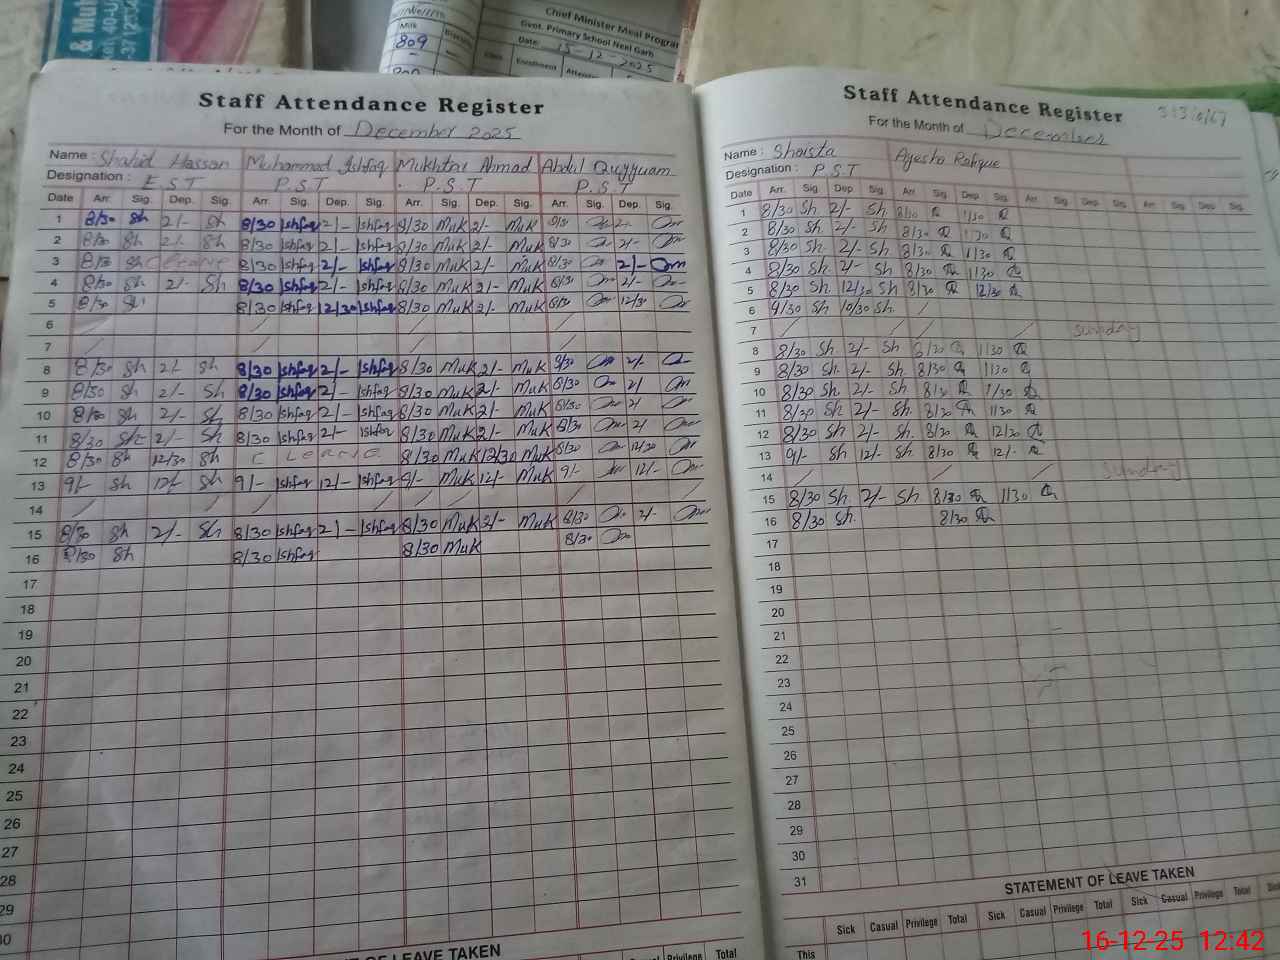 & Mul
Milk
809
Chief Minister Meal Progra
Govt. Primary School Neel Garh
Date: 15-12-2025
Enrollment
Staff Attendance Register
For the Month of December 2025
Name : Shahid Hassan Muhammad Ishfaq Mukhtar Ahmad Abdul Quyyuam
Designation : E.S.T P.S.T P.S.T P.S.T
Date Arr. Sig. Dep. Sig. Arr. Sig. Dep. Sig. Arr. Sig. Dep. Sig. Arr. Sig. Dep. Sig.
1 8/30 Sh 2/- Sh 8/30 Ishfaq 2/- Ishfaq 8/30 Muk 2/- Muk 8/30 2/-
2 8/30 Sh 2/- Sh 8/30 Ishfaq 2/- Ishfaq 8/30 Muk 2/- Muk 8/30 2/-
3 8/30 Sh C Leave 8/30 Ishfaq 2/- Ishfaq 8/30 Muk 2/- Muk 8/30 2/-
4 8/30 Sh 2/- Sh 8/30 Ishfaq 2/- Ishfaq 8/30 Muk 2/- Muk 8/30 2/-
5 8/30 Sh 8/30 Ishfaq 12/30 Ishfaq 8/30 Muk 2/- Muk 8/30 12/30
6
7
8 8/30 Sh 2/- Sh 8/30 Ishfaq 2/- Ishfaq 8/30 Muk 2/- Muk 8/30 2/-
9 8/30 Sh 2/- Sh 8/30 Ishfaq 2/- Ishfaq 8/30 Muk 2/- Muk 8/30 2/
10 8/30 Sh 2/- Sh 8/30 Ishfaq 2/- Ishfaq 8/30 Muk 2/- Muk 8/30 2/
11 8/30 Sh 2/- Sh 8/30 Ishfaq 2/- Ishfaq 8/30 Muk 2/- Muk 8/30 2/
12 8/30 Sh 12/30 Sh C Leave 8/30 Muk 12/30 Muk 8/30 12/30
13 9/- Sh 12/- Sh 9/- Ishfaq 12/- Ishfaq 9/- Muk 12/- Muk 9/- 12/-
14
15 8/30 Sh 2/- Sh 8/30 Ishfaq 2/- Ishfaq 8/30 Muk 2/- Muk 8/30 2/-
16 8/30 Sh 8/30 Ishfaq 8/30 Muk 8/30
17
18
19
20
21
22
23
24
25
26
27
28
29
30
OF LEAVE TAKEN
Privilege Total
Staff Attendance Register
For the Month of December
Name : Shaista Ayesha Rafique
Designation : P.S.T
Date Arr. Sig. Dep. Sig. Arr. Sig. Dep. Sig. Arr. Sig. Dep. Sig. Arr. Sig. Dep. Sig.
1 8/30 Sh 2/- Sh 8/30 1/30
2 8/30 Sh 2/- Sh 8/30 1/30
3 8/30 Sh 2/- Sh 8/30 1/30
4 8/30 Sh 2/- Sh 8/30 1/30
5 8/30 Sh 12/30 Sh 8/30 12/30
6 9/30 Sh 10/30 Sh.
7 Sunday
8 8/30 Sh 2/- Sh 8/30 1/30
9 8/30 Sh 2/- Sh. 8/30 1/30
10 8/30 Sh 2/- Sh. 8/30 1/30
11 8/30 Sh 2/- Sh. 8/30 1/30
12 8/30 Sh 2/- Sh. 8/30 12/30
13 9/- Sh 12/- Sh. 8/30 12/-
14 Sunday
15 8/30 Sh 2/- Sh 8/30 1/30
16 8/30 Sh. 8/30
17
18
19
20
21
22
23
24
25
26
27
28
29
30
31
STATEMENT OF LEAVE TAKEN
Sick Casual Privilege Total Sick Casual Privilege Total Sick Casual Privilege Total
This
16-12-25 12:42